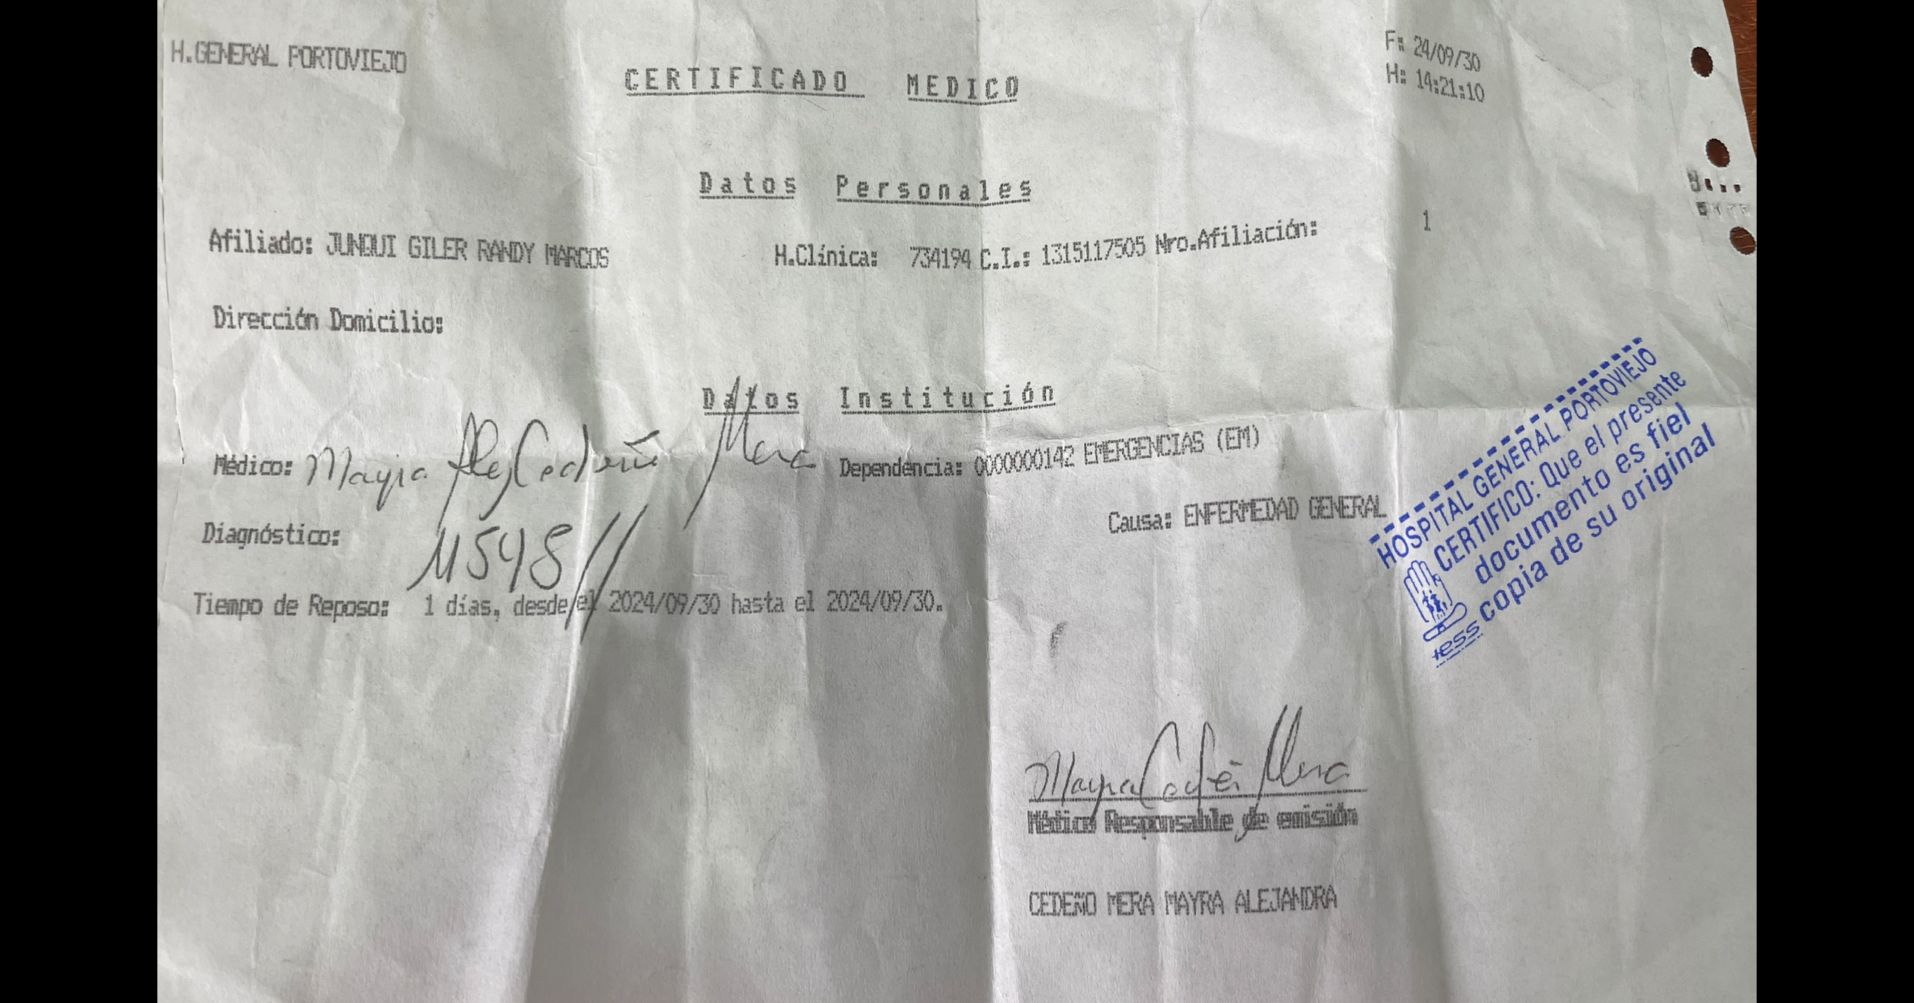 H.GENERAL PORTOVIEJO
F: 24/09/30
H: 14:21:10
CERTIFICADO MEDICO
Datos Personales
Afiliado: JUNQUI GILER RANDY MARCOS H.Clínica: 734194 C.I.: 1315117505 Nro.Afiliación: 1
Dirección Domicilio:
Datos Institución
Médico: Mayra Ale Cedeño Mera Dependencia: 0000000142 EMERGENCIAS (EM)
Diagnóstico: M545 Causa: ENFERMEDAD GENERAL
Tiempo de Reposo: 1 días, desde el 2024/09/30 hasta el 2024/09/30.
HOSPITAL GENERAL PORTOVIEJO
CERTIFICO: Que el presente
documento es fiel
copia de su original
iess
Mayra Cedeño Mera
Médico Responsable de emisión
CEDEÑO MERA MAYRA ALEJANDRA